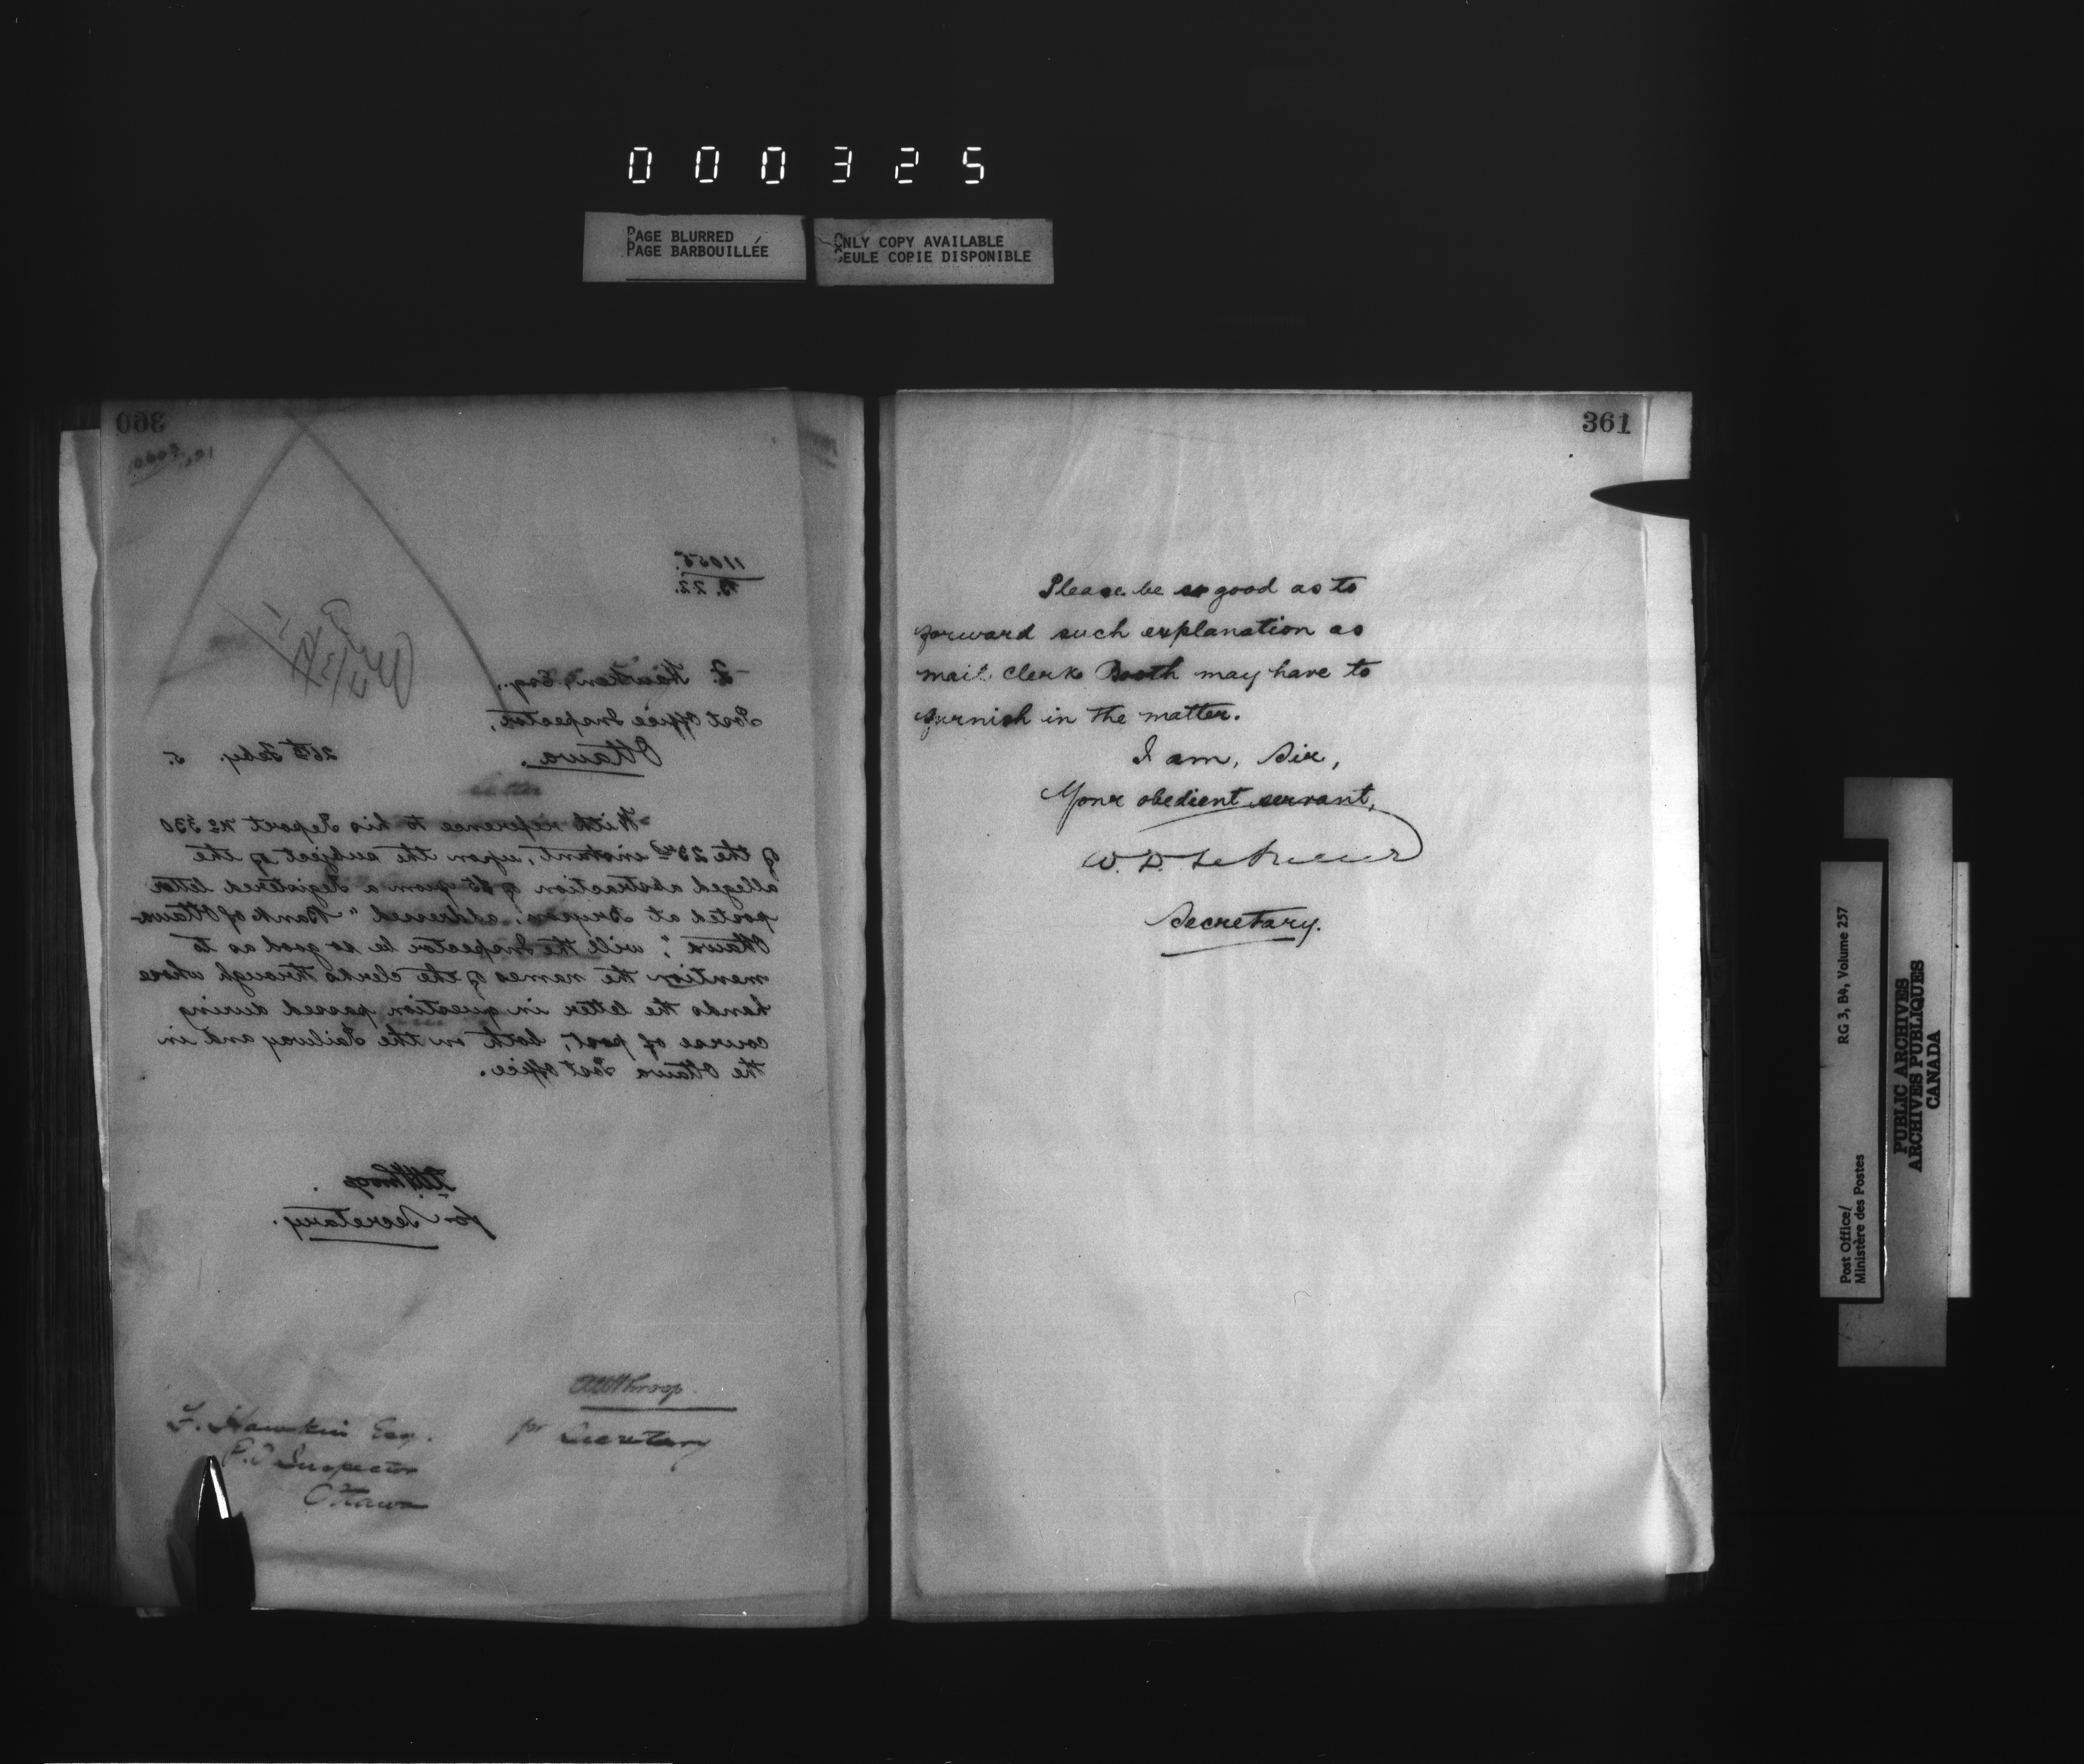 000325
PAGE BLURRED
PAGE BARBOUILLÉE
ONLY COPY AVAILABLE
SEULE COPIE DISPONIBLE
360
11055.
B. 22.
F. Hawken, Esq.,
Post Office Inspector,
Ottawa.
26th Feby. 5.
With reference to his Report No 530
of the 23rd instant, upon the subject of the
alleged abstraction of $5 from a Registered letter
posted at addressed "Bank of Ottawa
Ottawa", will the Inspector be so good as to
mention the names of the clerks through whose
hands the letter in question passed during
course of post, both on the Railway and in
the Ottawa Post Office.
for Secretary.
for Secretary
F. Hawken Esq.
P.O Inspector
Ottawa
361
Please be so good as to
forward such explanation as
mail clerk Booth may have to
furnish in the matter.
I am, Sir,
Your obedient servant,
W. D. LeSueur
Secretary.
RG 3, B4, Volume 257
Post Office/
Ministère des Postes
PUBLIC ARCHIVES
ARCHIVES PUBLIQUES
CANADA